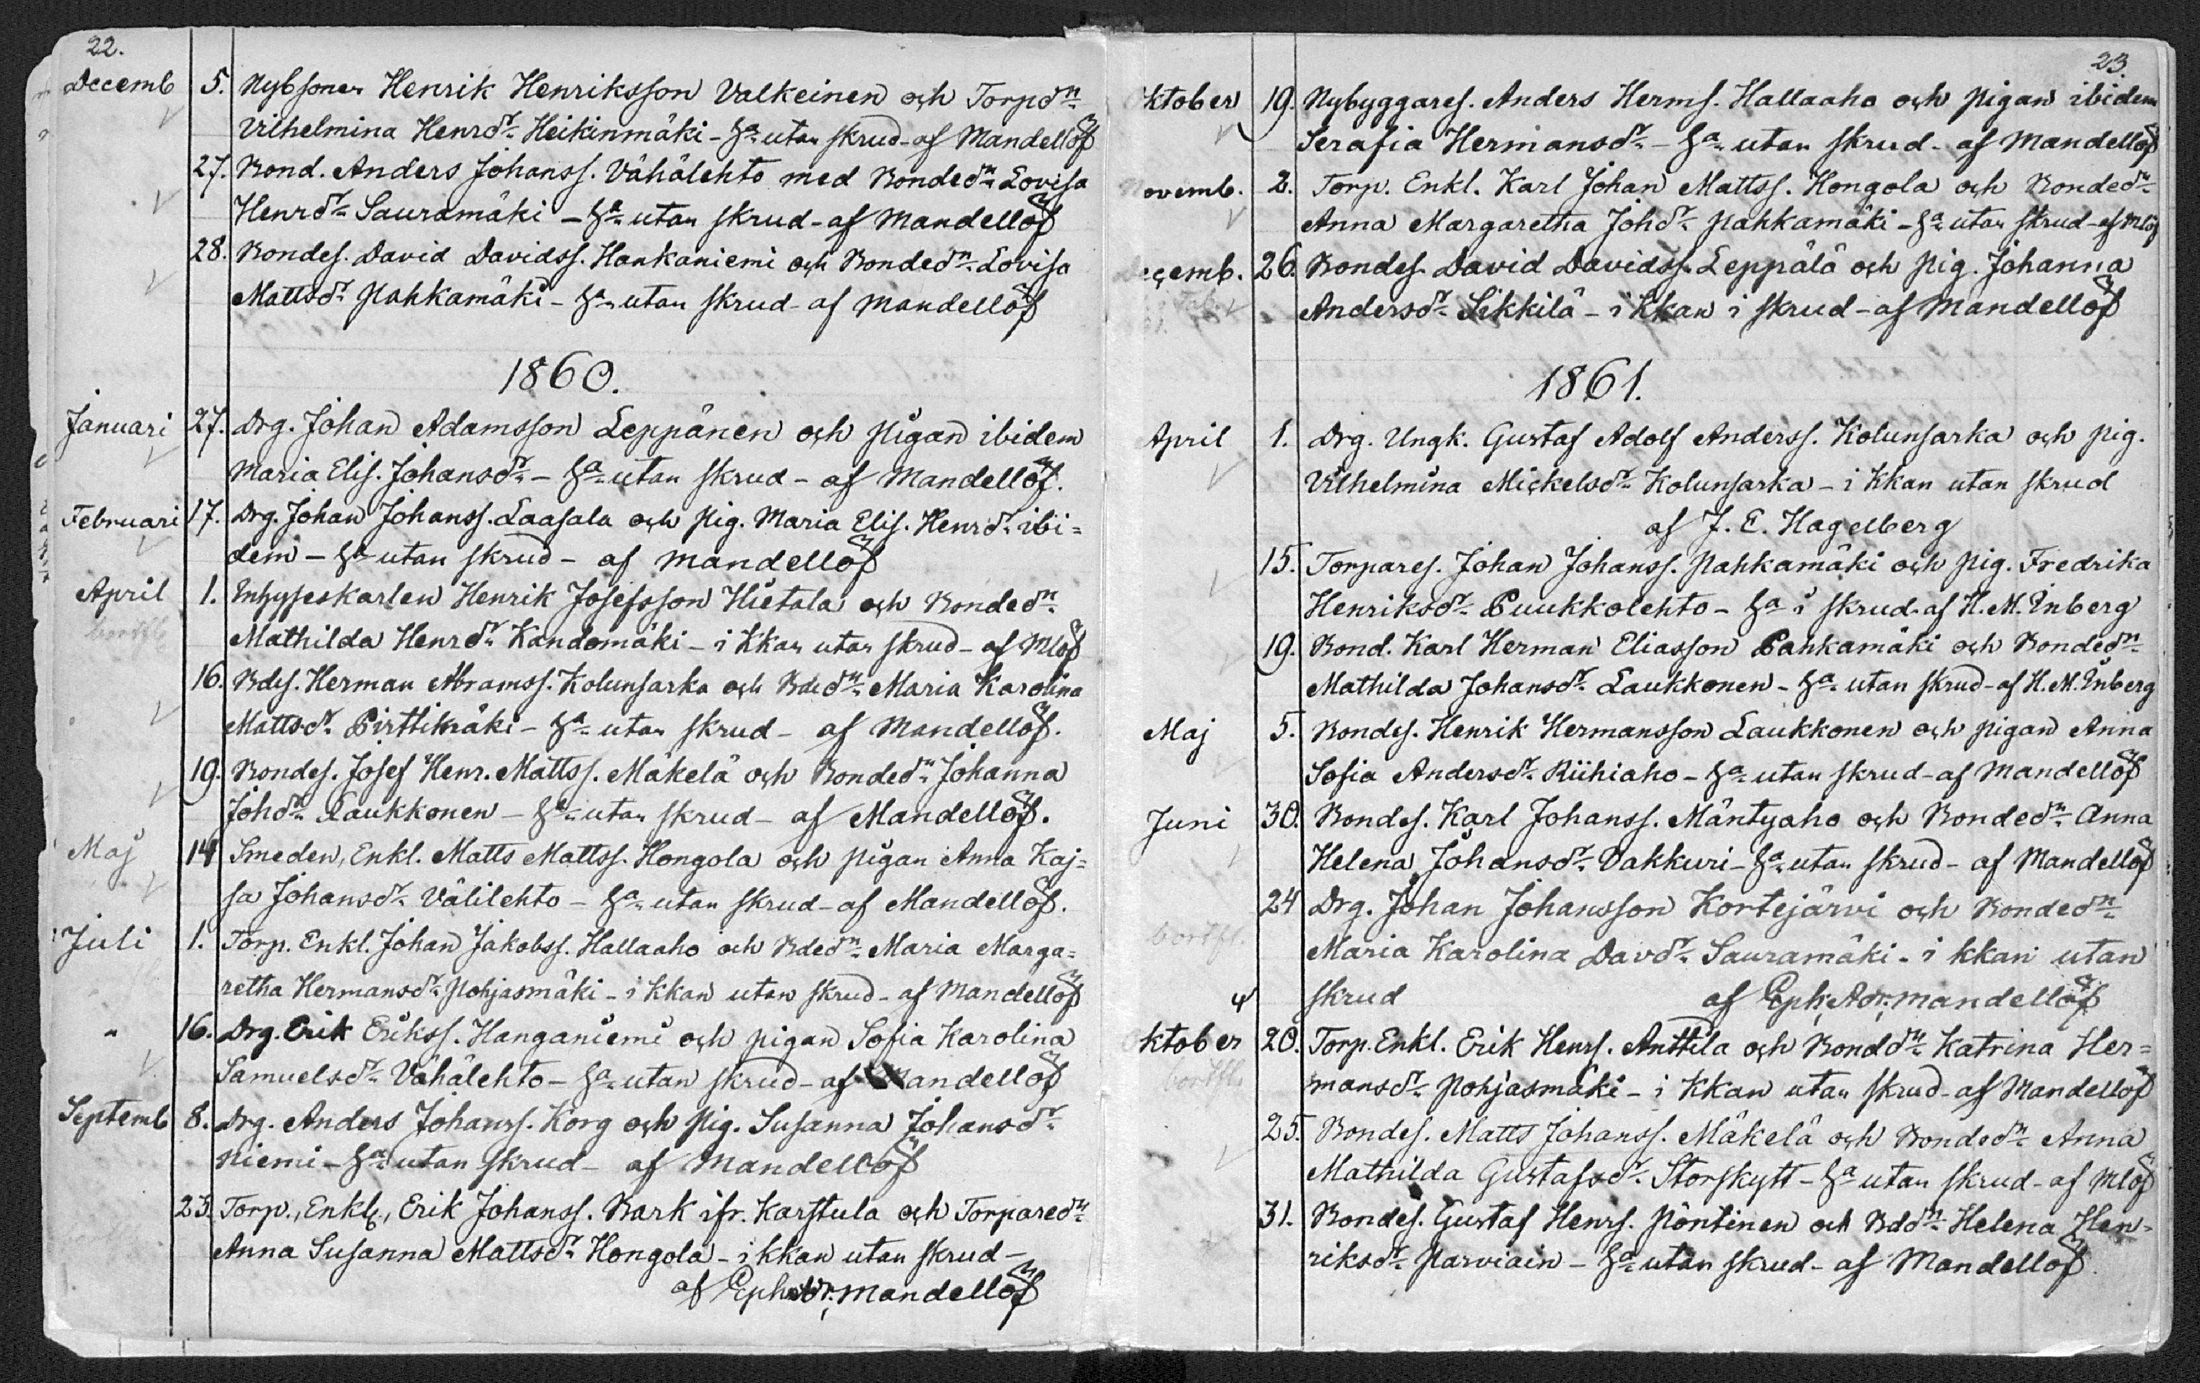 22.
Decemb 5. Nybsonen Henrik Henriksson Valkeinen och Torpdn
Vilhelmina Henrdr Heikinmäki - utan skrud - af Mandellöf
27. Bond. Anders Johanss. Vähälehto med Bondedn Lovisa
Henrdr Sauramäki - utan skrud - af Mandellöf
28. Bondes. David Davidss. Hankaniemi och Bondedn Lovisa
Mattsdr Pahkamäki - utan skrud - af Mandellöf
1860.
Januari 27. Drg. Johan Adamsson Leppänen och pigan ibidem
Maria Elis. Johansdr - utan skrud - af Mandellöf.
Februari 17. Drg. Johan Johanss. Laasala och pig. Maria Elis. Henrdr ibi=
dem - utan skrud - af Mandellöf
April 1. Inhyseskarlen Henrik Josefsson Hietala och Bondedn
bortfl. Mathilda Henrdr Kandomäki - i kkan utan skrud - af Mlöf
16. Bdes. Herman Abramss. Kolunsarka och Bdedn Maria Karolina
Mattsdr Pirttimäki - utan skrud - af Mandellöf.
19. Bondes. Josef Henr. Mattss. Mäkelä och Bondedn Johanna
Johdr Laukkonen - utan skrud - af Mandellöf.
Maj 14 Smeden, Enkl. Matts Mattss. Hongola och pigan Anna Kaj=
sa Johansdr Välilehto - utan skrud - af Mandellöf.
Juli 1. Torp. Enkl. Johan Jakobss. Hallaaho och Bdedn Maria Marga=
retha Hermansdr Pohjasmäki - i kkan utan skrud - af Mandellöf
" 16. Drg. Erik Erikss. Hanganiemi och pigan Sofia Karolina
Samuelsdr Vähälehto - utan skrud - af Mandellöf
Septemb 8. Drg. Anders Johanss. Korg och pig. Susanna Johansdr
Niemi - utan skrud - af Mandellöf
23. Torp., Enkl., Erik Johanss. Bark ifr. Karstula och Torparedn
Anna Susanna Mattsdr Hongola - i kkan utan skrud -
af Eph. Adj. Mandellöf
23.
ktober 19. Nybyggares. Anders Herms. Hallaaho och pigan ibidem
Serafia Hermansdr - utan skrud - af Mandellöf
ovemb. 2. Torp. Enkl. Karl Johan Mattss. Hongola och Bondedn
Anna Margaretha Johdr Pahkamäki - utan skrud - af Mlöf
ecemb. 26. Bondes. David Davidss. Leppälä och pig. Johanna
Andersdr Sikkilä - i kkan i skrud - af Mandellöf
1861.
April 1. Drg. Ungk. Gustaf Adolf Anderss. Kolunsarka och pig.
Vilhelmina Mickelsdr Kolunsarka - i kkan utan skrud
af J. E. Hagelberg
15. Torpares. Johan Johanss. Pahkamäki och pig. Fredrika
Henriksdr Puukkolehto - i skrud - af H. M. Enberg
19. Bond. Karl Herman Eliasson Pahkamäki och Bondedn
Mathilda Johansdr Laukkonen - utan skrud - af H. M. Enberg
Maj 5. Bondes. Henrik Hermansson Laukkonen och pigan Anna
Sofia Andersdr Riihiaho - utan skrud - af Mandellöf
Juni 30. Bondes. Karl Johanss. Mäntyaho och Bondedn Anna
Helena Johansdr Vakkuri - utan skrud - af Mandellöf
24 Drg. Johan Johansson Kortejärvi och Bondedn
bortfl. Maria Karolina Davdr Sauramäki - i kkan utan
skrud af Eph. Adj. Mandellöf
ktober 20. Torp. Enkl. Erik Henrs. Anttila och Bonddn Katrina Her=
bortfl. mansdr Pohjasmäki - i kkan utan skrud - af Mandellöf
25. Bondes. Matts Johanss. Mäkelä och Bondedn Anna
Mathilda Gustafsdr Storskytt - utan skrud - af Mlöf
31. Bondes. Gustaf Henrs. Pöntinen och Bddn Helena Hen=
riksdr Parviain - utan skrud - af Mandellöf.